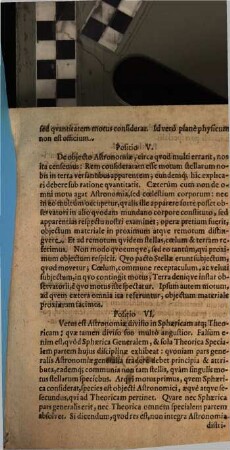 sed quantitatem motus considerat. Id verò planè physicum
non est officium.
Positio V.
De objecto Astronomiæ, circa quod multi errant, nos
ita censemus: Rem consideratam esse motum stellarum no-
bis in terra versantibus apparentem, eundemq́; hic expli-
cari debere sub ratione quantitatis. Cæterùm cum non de o-
mni mota agat Astronomia, sed cœlestium corporum: nec
in eo multum occupetur, qualis ille apparere forte posset ob-
servatori in alio quodam mundano corpore constituto, sed
apparentias respectu nostri examinet: opera pretium fuerit,
objectum materiale in proximum atque remotum distin-
guere. Et ad remotum quidem stellas, cœlum & terram re-
ferimus. Non modò quemque, sed eo tantùm, qui
proximum objectum respicit. Quo pacto Stellæ erunt subjectum,
quod movetur, Cœlum, commune receptaculum, aut veluti
subjectum, in quo contingit motus; Terra denique instar ob-
servatorii, è quo motus iste spectatur. Ipsum autem motum,
ad quem extera omnia ita referuntur, objectum materiale
proximum facimus.
Positio VI.
Vetus est Astronomiæ divisio in Sphæricam atq; Theo-
ricam; quæ tamen divisio suo multò angustior. Falsum e-
nim est, quòd Sphæra Generalem, & sola Theorica Specia-
lem partem hujus disciplinæ exhibeat: quoniam pars gene-
ralis Astronomiæ generalia tradere debet principia & attri-
buta, eademq́; communia non tam stellis, quàm singulis mo-
tus stellarum speciebus. Atqui motus primus, quem Sphæri-
ca considerat, species est objecti Astronomici, æquè atque se-
cundus, qui ad Theoricam pertinet. Quare nec Sphærica
pars generalis erit, nec Theorica omnem specialem partem
absolvet. Si dicendum, quod res est, non integra Astronomia
distri-